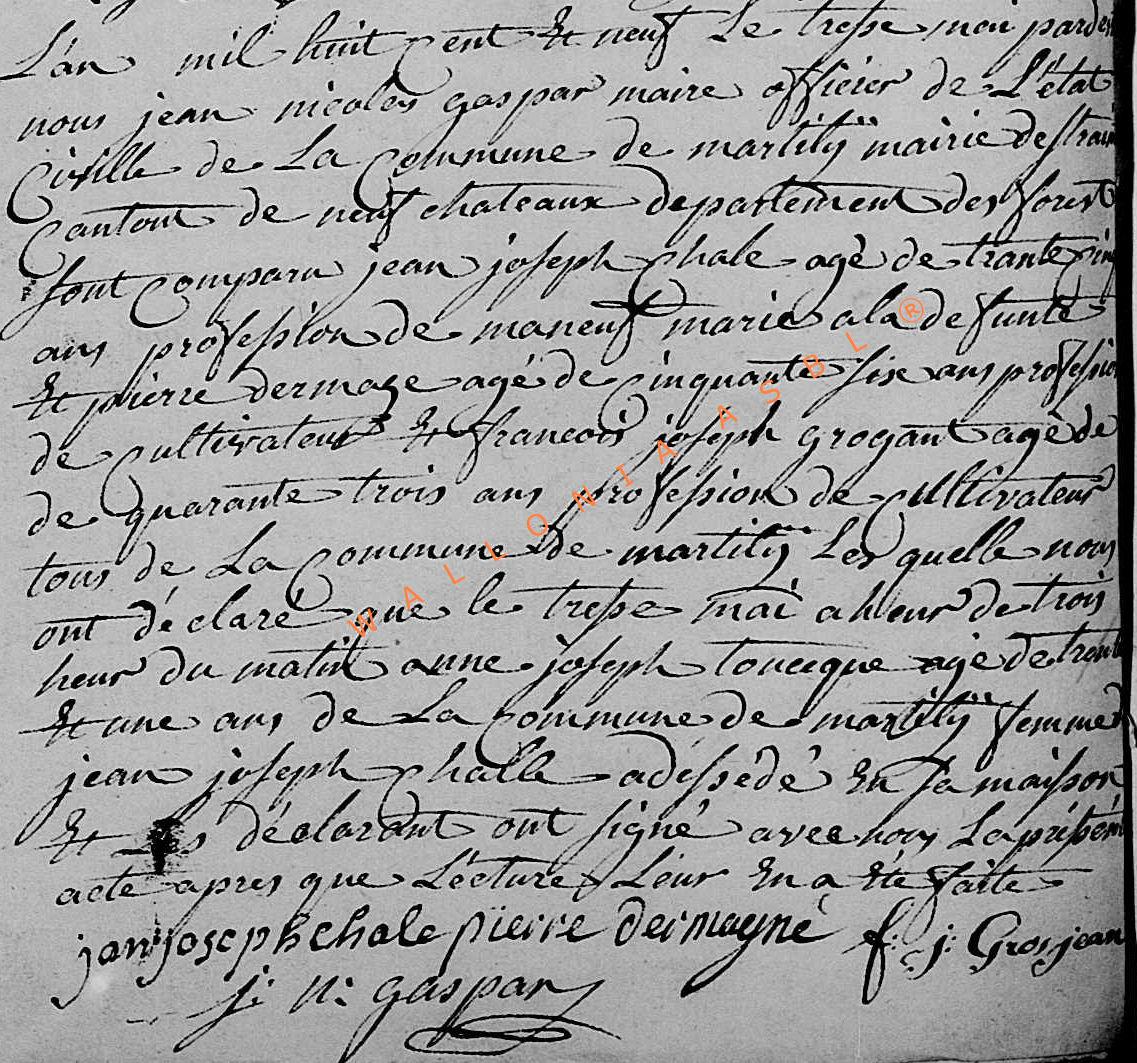 L'an mil huit cent Et neuf Le trese mai par des
nous jean nicolas gaspar maire officier de L'état
Civille de La Commune de martilÿ mairie destrai
Cantont de neuf chateaux departement des forest
sont Comparu jean joseph Chale agé de trante cin
ans profession de maneuf marie a la defunte
Et pierre dermage agé de Cinquante six ans profession
de Cultivateur Et francois joseph grogant agé de
de quarante trois ans profession de Cultivateur
tous de La Commune De martilÿ Les quelle nous
ont déclaré que le trese mai a heur de trois
heur du matin anne joseph agé de trente
Et une ans de La Commune de martilÿ femme d
jean joseph Challe adéssédé En sa maisson
Et Les déclarant ont signé avec nous La présen
acte apres que Lécture Leur En a été faite
jan joseph chale pïerre Dermagné f: j: Grosjean
j: n: gaspar
WALLONIA ASBL ®